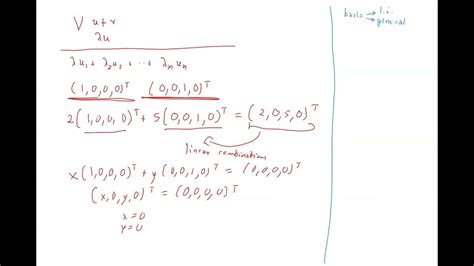 V u+v
λu
λu₁ + λ₂u₂ + ... + λₙuₙ
(1,0,0,0)ᵀ (0,0,1,0)ᵀ
2(1,0,0,0)ᵀ + 5(0,0,1,0)ᵀ = (2,0,5,0)ᵀ
linear combinations
x(1,0,0,0)ᵀ + y(0,0,1,0)ᵀ = (0,0,0,0)ᵀ
(x,0,y,0)ᵀ = (0,0,0,0)ᵀ
x=0
y=0
basis l.i.
general